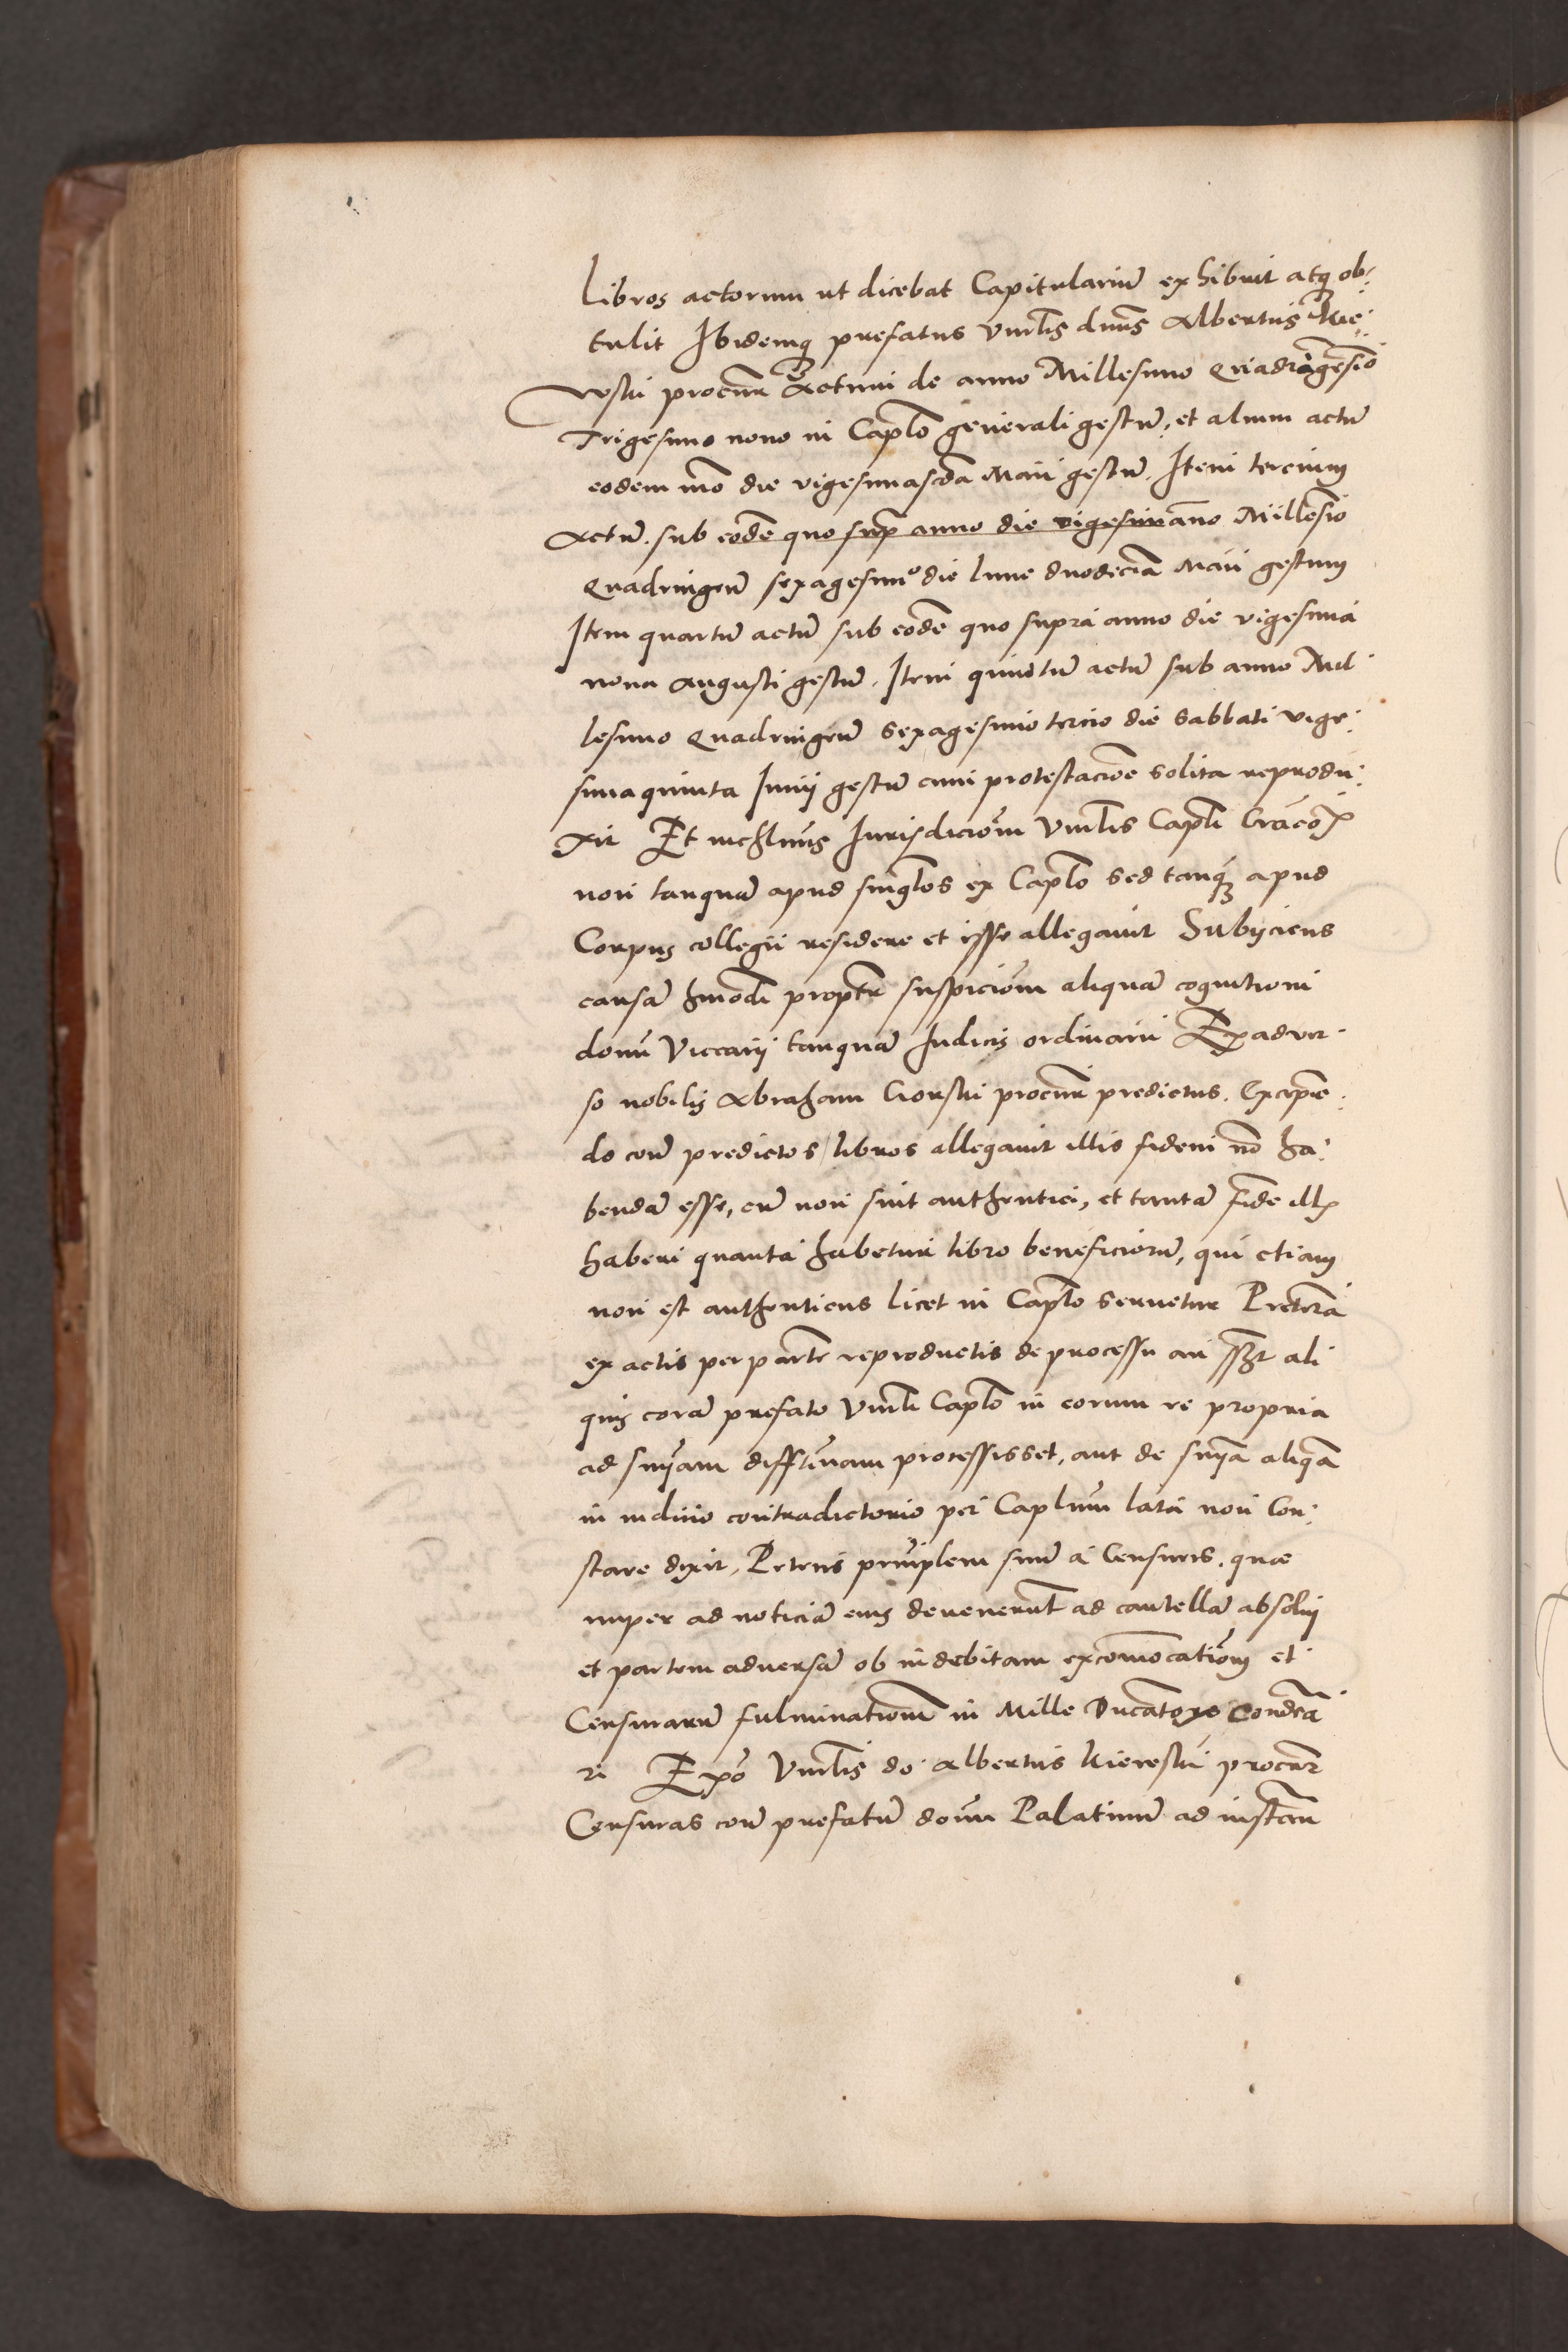 Libros actorum ut dicebat Capitulariū exhibuit atq ob:
tulit Ibidemq prefatus Vnrlis dnus Albertus Kie:
reski procur Actum de anno Millesimo Quadragesīo
Trigesimo nono in Caplo generali gestū, et alium actū
eodem mō die vigesimascda Maii gestū. Item tercium
Actū. sub eodē quo sup anno die vigesim āno Millesīo
Quadringen̄ sexagesimo die lune duodecīa Maii gestum
Item quartū actū sub eodē quo supra anno die vigesima
nona Augusti gestū. Item quintū actū sub anno Mil
lesimo Quadringen̄ Sexagesimo tercio die Sabbati vige:
simaquinta Junij gestū cum protestacioē solita reprodu:
xit Et Jurisdiciōm Vnrlis Capli Cracō
non tanquā apud singlos ex Caplo sed tanq apud
Corpus collegii residere et esse allegavit Subijciens
causā hmōdi propter suspiciōm aliquā cognitioni
domī Viccarij tanquā Judicis ordinarii Exadver
so nobilis Abraham Gorski procur predictus. Excipiē:
do con̄ predictos libros allegavit illis fidem nō ha:
bendā esse, cū non sint authentici, et tantā fidē ill
haberi quanta habetur libro beneficiorū, qui etiam
non est authenticus licet in Caplo servetur Pretereā
ex actis per partē reproductis de processu an ali
quis corā prefato Vnrli Caplo in eorum re propria
ad snīam diffivam processisset, aut de snīa aliqā
in iudicio contradictorio per Caplum lata non Con:
stare dixit, Petens principlem suū a Censuris. quæ
nuper ad noticiā eius devenerūt ad cautellā absolvj
et partem adversā ob indebitam excomōcatiōm et
Censurarū fulminationē in Mille Ducatos Condēa
ri Expo Vnrlis do Albertus Kiereski procur
Censuras con̄ prefatū domī Palatinū ad instan